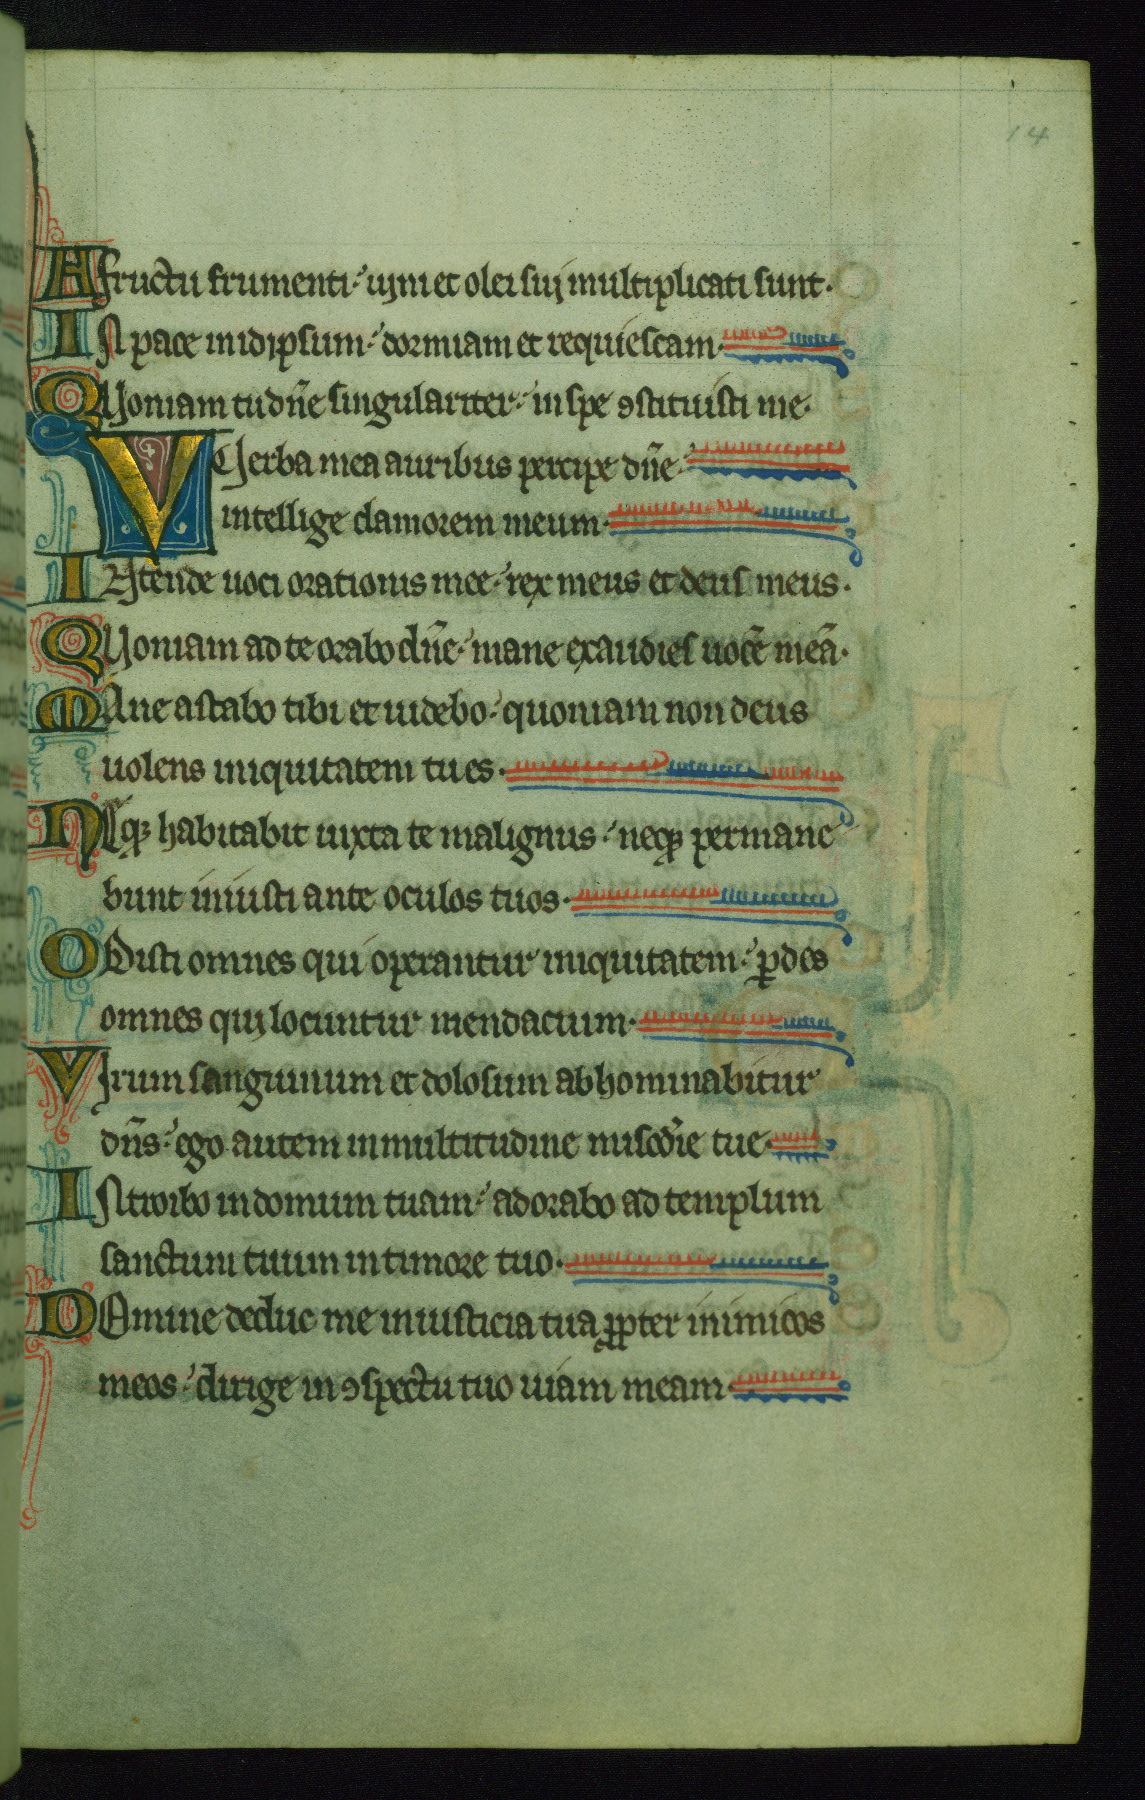 14
A fructu frumenti· uini et olei sui multiplicati sunt·
IN pace in idipsum· dormiam et requiescam·
QUoniam tu dn̄e singulariter· in spe ꝯstituisti me·
VErba mea auribus percipe dn̄e·
intellige clamorem meum·
INtende uoci orationis mee· rex meus et deus meus·
QUoniam ad te orabo dn̄e· mane exaudies uocē meā·
MAne astabo tibi et uidebo· quoniam non deus
uolens iniquitatem tu es·
NEqꝫ habitabit iuxta te malignus· neqꝫ permane
bunt iniusti ante oculos tuos·
ODisti omnes qui operantur iniquitatem· ꝑdes
omnes qui locuntur mendacium·
VIrum sanguinum et dolosum abhominabitur
dn̄s· ego autem in multitudine misc̄die tue·
INtroibo in domum tuam· adorabo ad templum
sanctum tuum in timore tuo·
DOmine deduc me in iusticia tua ꝓpter inimicos
meos· dirige in ꝯspectu tuo uiam meam·